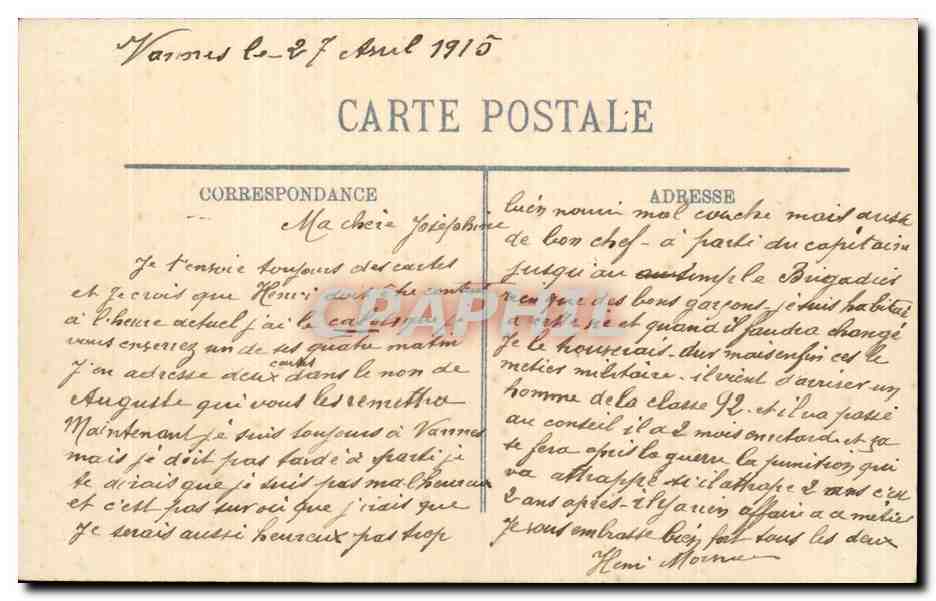 Vannes le 27 Avril 1915
CARTE POSTALE
CORRESPONDANCE
Ma chère Joséphine
Je t'envoie toujours des cartes
et je crois que Henri doit être content
à l'heure actuel j'ai le
vous enverrez un de ses quatre matin
J'en adresse deux cartes dans le non de
Auguste qui vous les remettra
Maintenant je suis toujours à Vannes
mais je doit pas tardé à parti je
te dirais que je suis pas malheureux
et c'est pas sur où que j'irais que
Je serais aussi heureux pas trop
ADRESSE
bien nourri mal couche mais aussi
de bon chef - à parti du capitaine
jusqu'au simple Brigadier
rien que des bons garçons, je suis habitué
à cette vie et quand il faudra changé
Je le trouverais dur mais enfin ces le
metier militaire - il vient d'arriver un
homme de la classe 92 - et il va passé
au conseil il a 2 mois en retard et sa
se fera après la guerre la punition qui
va attrappé si il attrape 2 ans c'est
2 ans après - il y a rien affaire a ce metier
Je vous embrasse bien fort tous les deux
Henri
CPAPHIL